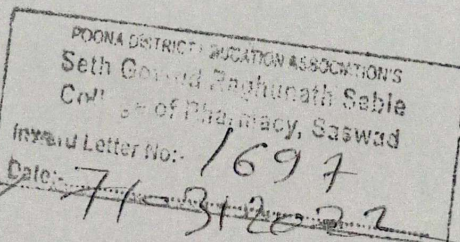 POONA DISTRICT EDUCATION ASSOCIATION'S
Seth Govind Raghunath Sable
College of Pharmacy, Saswad
Inward Letter No:- 1697
Date:- 7/-3/2022